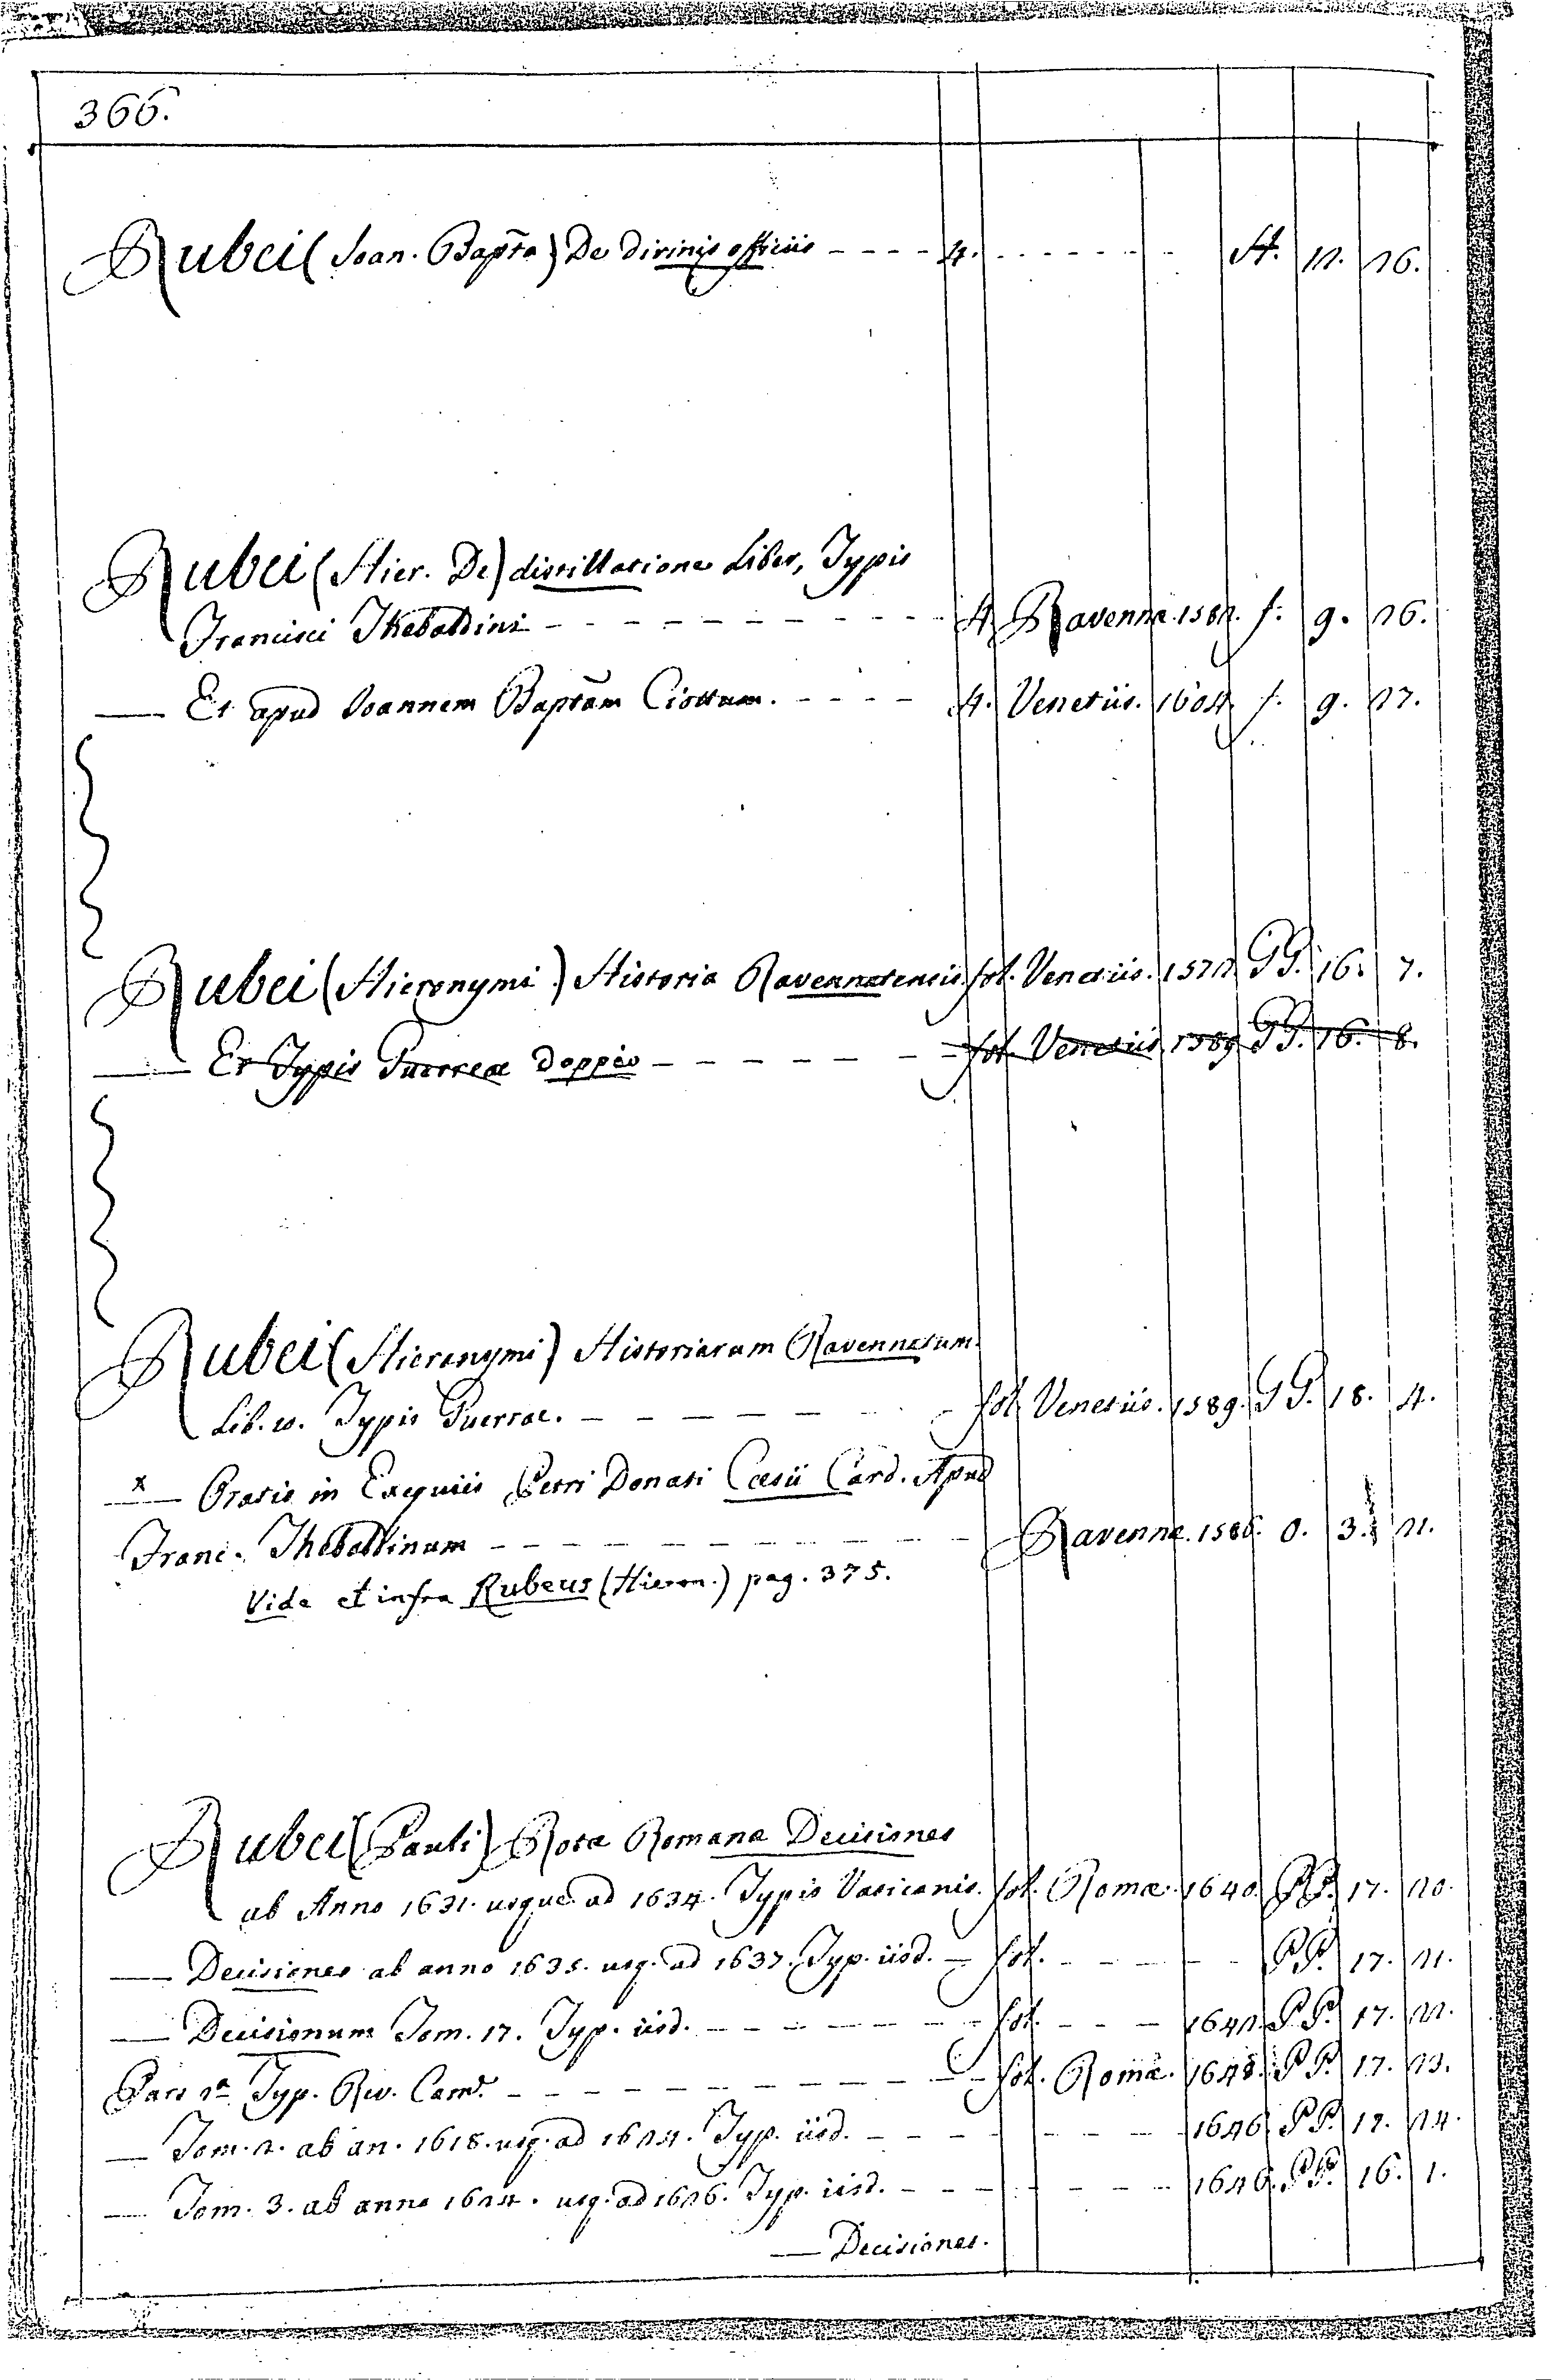 366.
Rubei (Ioan. Bapta) De Divinis officiis - - - - 4. - - - - - - A. 12. 26.
Rubei (Hier. De) distillatione Liber, Typis
Francisci Thebaldini - - - - - - - - - - 4. Ravennæ. 1582. f. 9. 26.
— Et apud Ioannem Baptam Ciottum. - - - - 4. Venetiis. 1604. f. 9. 27.
Rubei (Hieronymi) Historia Ravennatensis fol. Venetiis. 1572. GG. 16. 7.
— Et Typis Guerreæ Doppio - - - - - - fol. Venetiis 1589 GG. 16. 8.
Rubei (Hieronymi) Historiarum Ravennatum
Lib. 10. Typis Guerrae. - - - - - - fol. Venetiis. 1589. GG. 18. 4.
x — Oratio in Exequiis Petri Donati Cæsii Card. Apud
Franc. Thebaldinum - - - - - - - - Ravennæ. 1586. O. 3. 21.
Vide et infra Rubeus (Hieron.) pag. 375.
Rubei (Pauli) Rotæ Romanæ Decisiones
ab Anno 1631. usque ad 1634. Typis Vaticanis. fol. Romæ. 1640. PP. 17. 20.
— Decisiones ab anno 1635. usq. ad 1637. Typ. iisd. - fol. - - - - PP. 17. 21.
— Decisionum Tom. 17. Typ. iisd. - - - - - - - fol. - - - 1642. PP. 17. 22.
Pars 2a Typ. Rev. Cam. - - - - - - - - - fol. Romæ. 1645. PP. 17. 23.
— Tom. 2. ab an. 1618. usq. ad 1624. Typ. iisd. - - - - - - - 1646. PP. 17. 24.
— Tom. 3. ab anno 1624. usq. ad 1626. Typ. iisd. - - - - - - - 1646. PP. 16. 1.
— Decisiones.